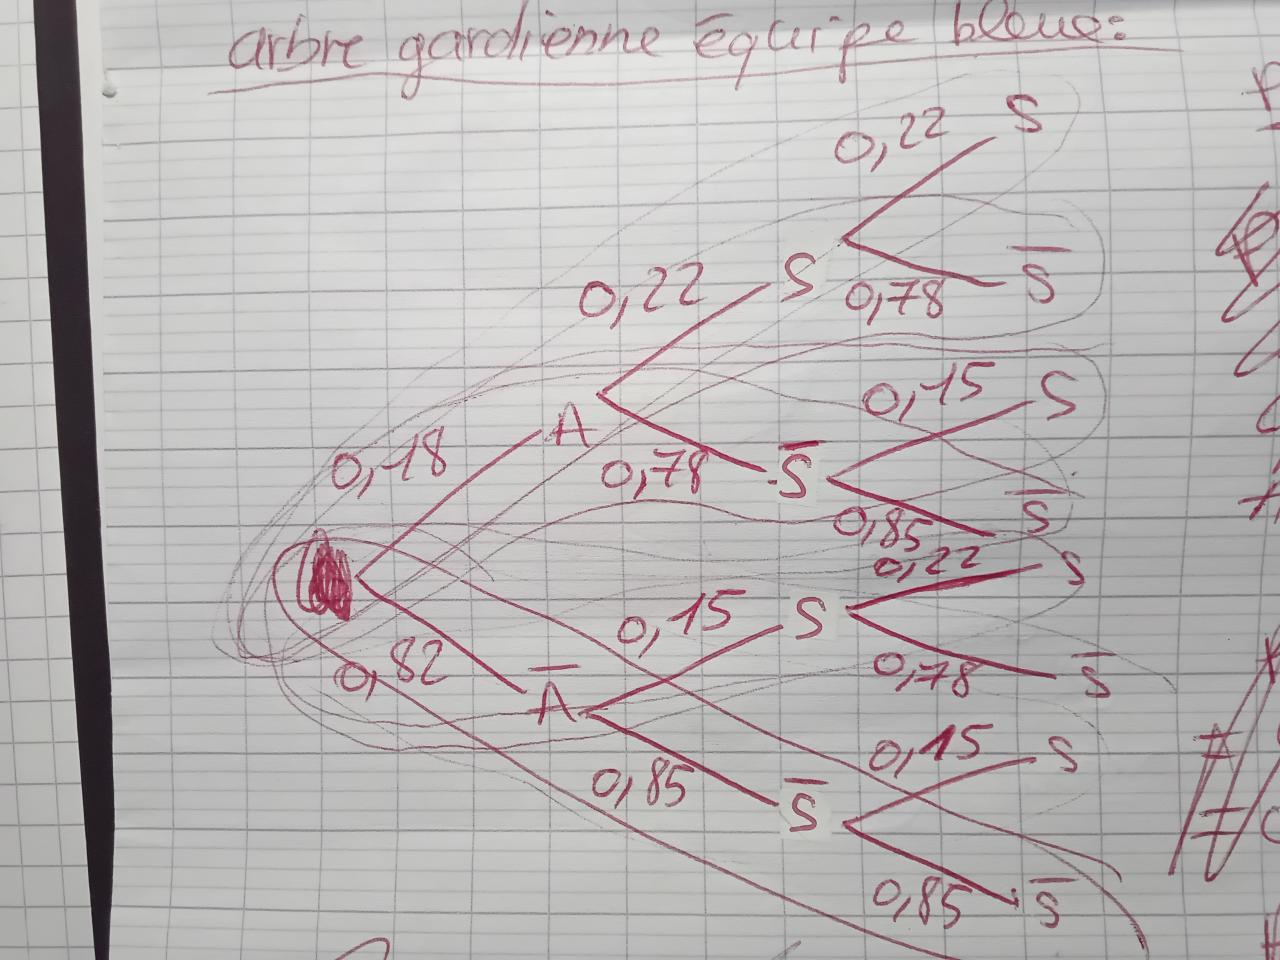 arbre gardienne équipe bleue:
0,22 S
0,22 S
0,78 S̅
0,18 A
0,15 S
0,78 S̅
0,85 S̅
0,22 S
0,15 S
0,82 A̅
0,78 S̅
0,15 S
0,85 S̅
0,85 S̅